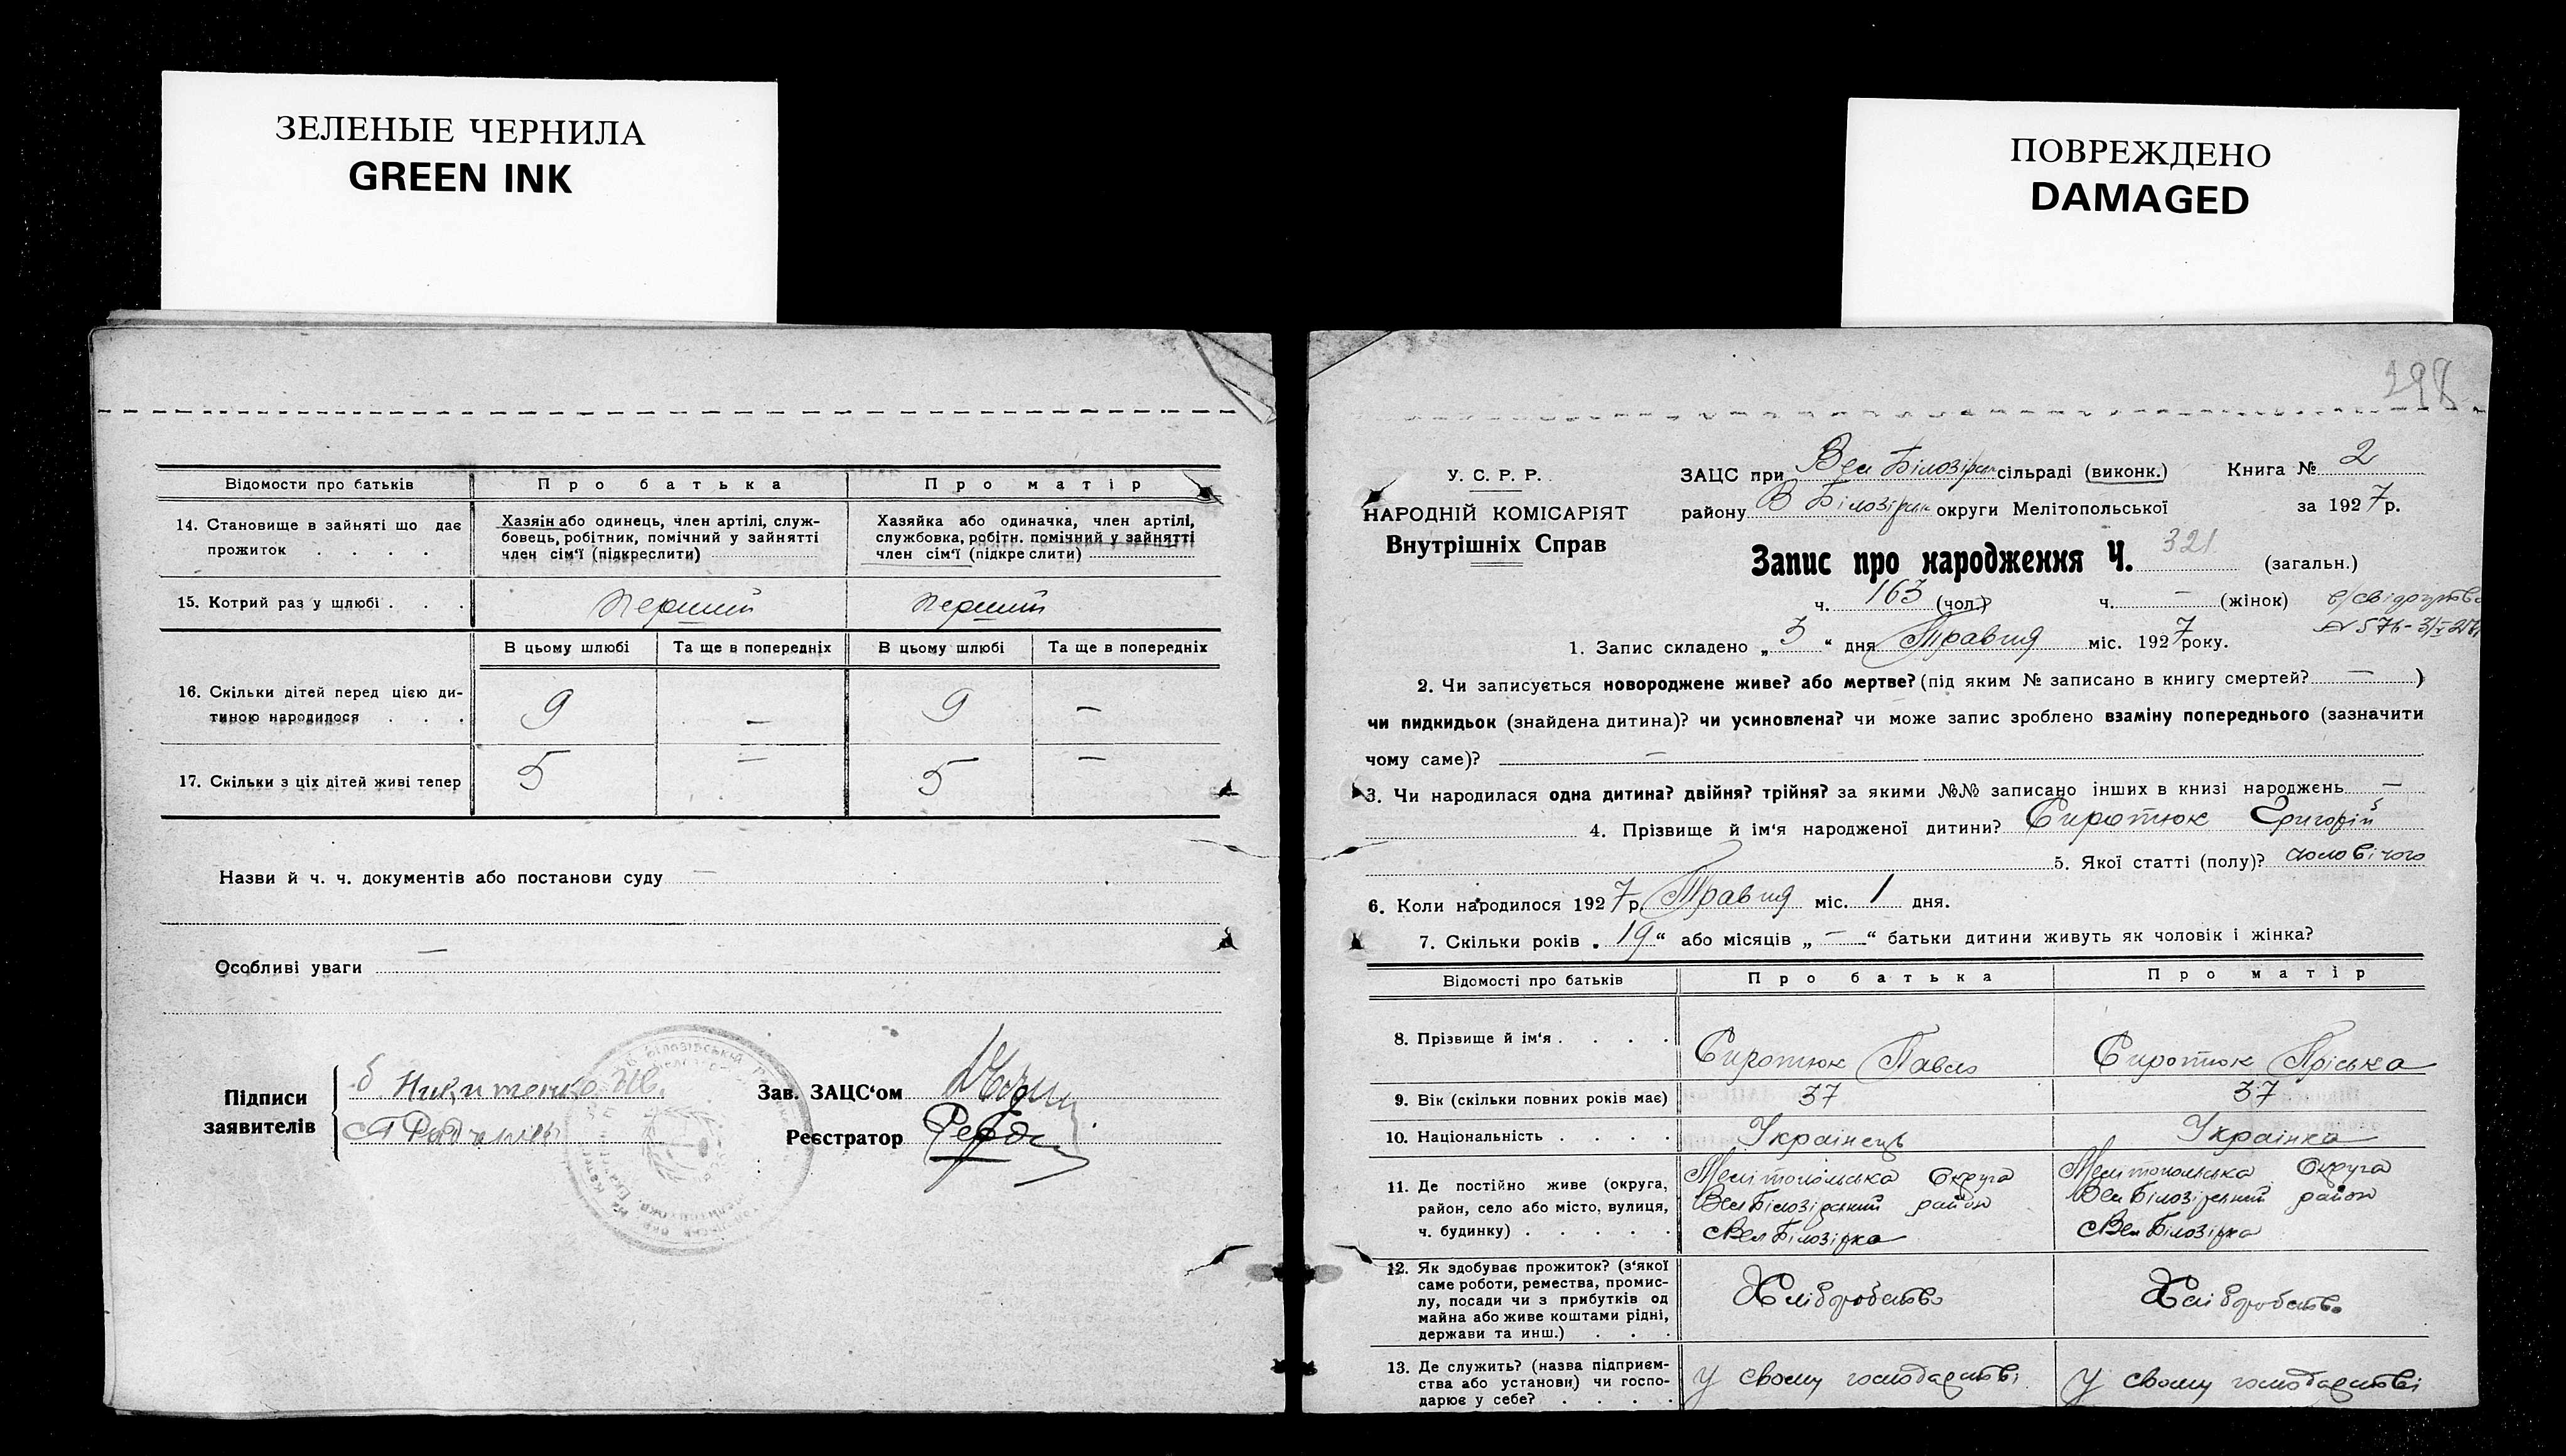 ЗЕЛЕНЫЕ ЧЕРНИЛА
GREEN INK
ПОВРЕЖДЕНО
DAMAGED
Відомости про батьків Про батька Про матір
14. Становище в зайняті що дає прожиток . . . .
Хазяін або одинець, член артілі, служ-
бовець, робітник, помічний у зайнятті
член сім'ї (підкреслити)
Хазяйка або одиначка, член артілі,
службовка, робітн. помічний у зайнятті
член сім'ї (підкреслити)
15. Котрий раз у шлюбі . . . Перший Перший
В цьому шлюбі Та ще в попередніх В цьому шлюбі Та ще в попередніх
16. Скільки дітей перед цією ди-
тиною народилося . . . 9 — 9 —
17. Скільки з ціх дітей живі тепер 5 — 5 —
Назви й ч. ч. документів або постанови суду —
Особливі уваги —
Підписи
заявителів
Никитенко
Зав. ЗАЦС'ом
Реєстратор
298
У. С. Р. Р.
НАРОДНІЙ КОМІСАРІЯТ
Внутрішніх Справ
ЗАЦС при Вел Білозірск сільраді (виконк.) Книга № 2
району В Білозірск округи Мелітопольської за 1927 р.
Запис про народження Ч. 321 (загальн.)
ч. 163 (чол.) ч. — (жінок)
1. Запис складено „ 3 “ дня Травня міс. 1927 року.
2. Чи записується новороджене живе? або мертве? (під яким № записано в книгу смертей? — )
чи пидкидьок (знайдена дитина)? чи усиновлена? чи може запис зроблено взаміну попереднього (зазначити
чому саме)? —
3. Чи народилася одна дитина? двійня? трійня? за якими №№ записано інших в книзі народжень —
4. Прізвище й ім'я народженої дитини? Сиротюк Григорій
5. Якої статті (полу)? чоловічого
6. Коли народилося 1927 р. Травня міс. 1 дня.
7. Скільки років „ 19 “ або місяців „ — “ батьки дитини живуть як чоловік і жінка?
Відомості про батьків Про батька Про матір
8. Прізвище й ім'я . . . . Сиротюк Павло Сиротюк Пріська
9. Вік (скільки повних років має) 37 37
10. Національність . . . . Українець Українка
11. Де постійно живе (округа,
район, село або місто, вулиця,
ч. будинку) . . . . .
Мелітопольська Округа
Вел Білозірський район
с Вел Білозірка
Мелітопольська Округа
Вел Білозірський район
с Вел Білозірка
12. Як здобуває прожиток? (з'якої
саме роботи, ремества, промис-
лу, посади чи з прибутків од
майна або живе коштами рідні,
держави та инш.) . . .
Хліборобство
Хліборобство
13. Де служить? (назва підприєм-
ства або установи) чи госпо-
дарює у себе? . . . .
У своему господарстві
У своему господарстві